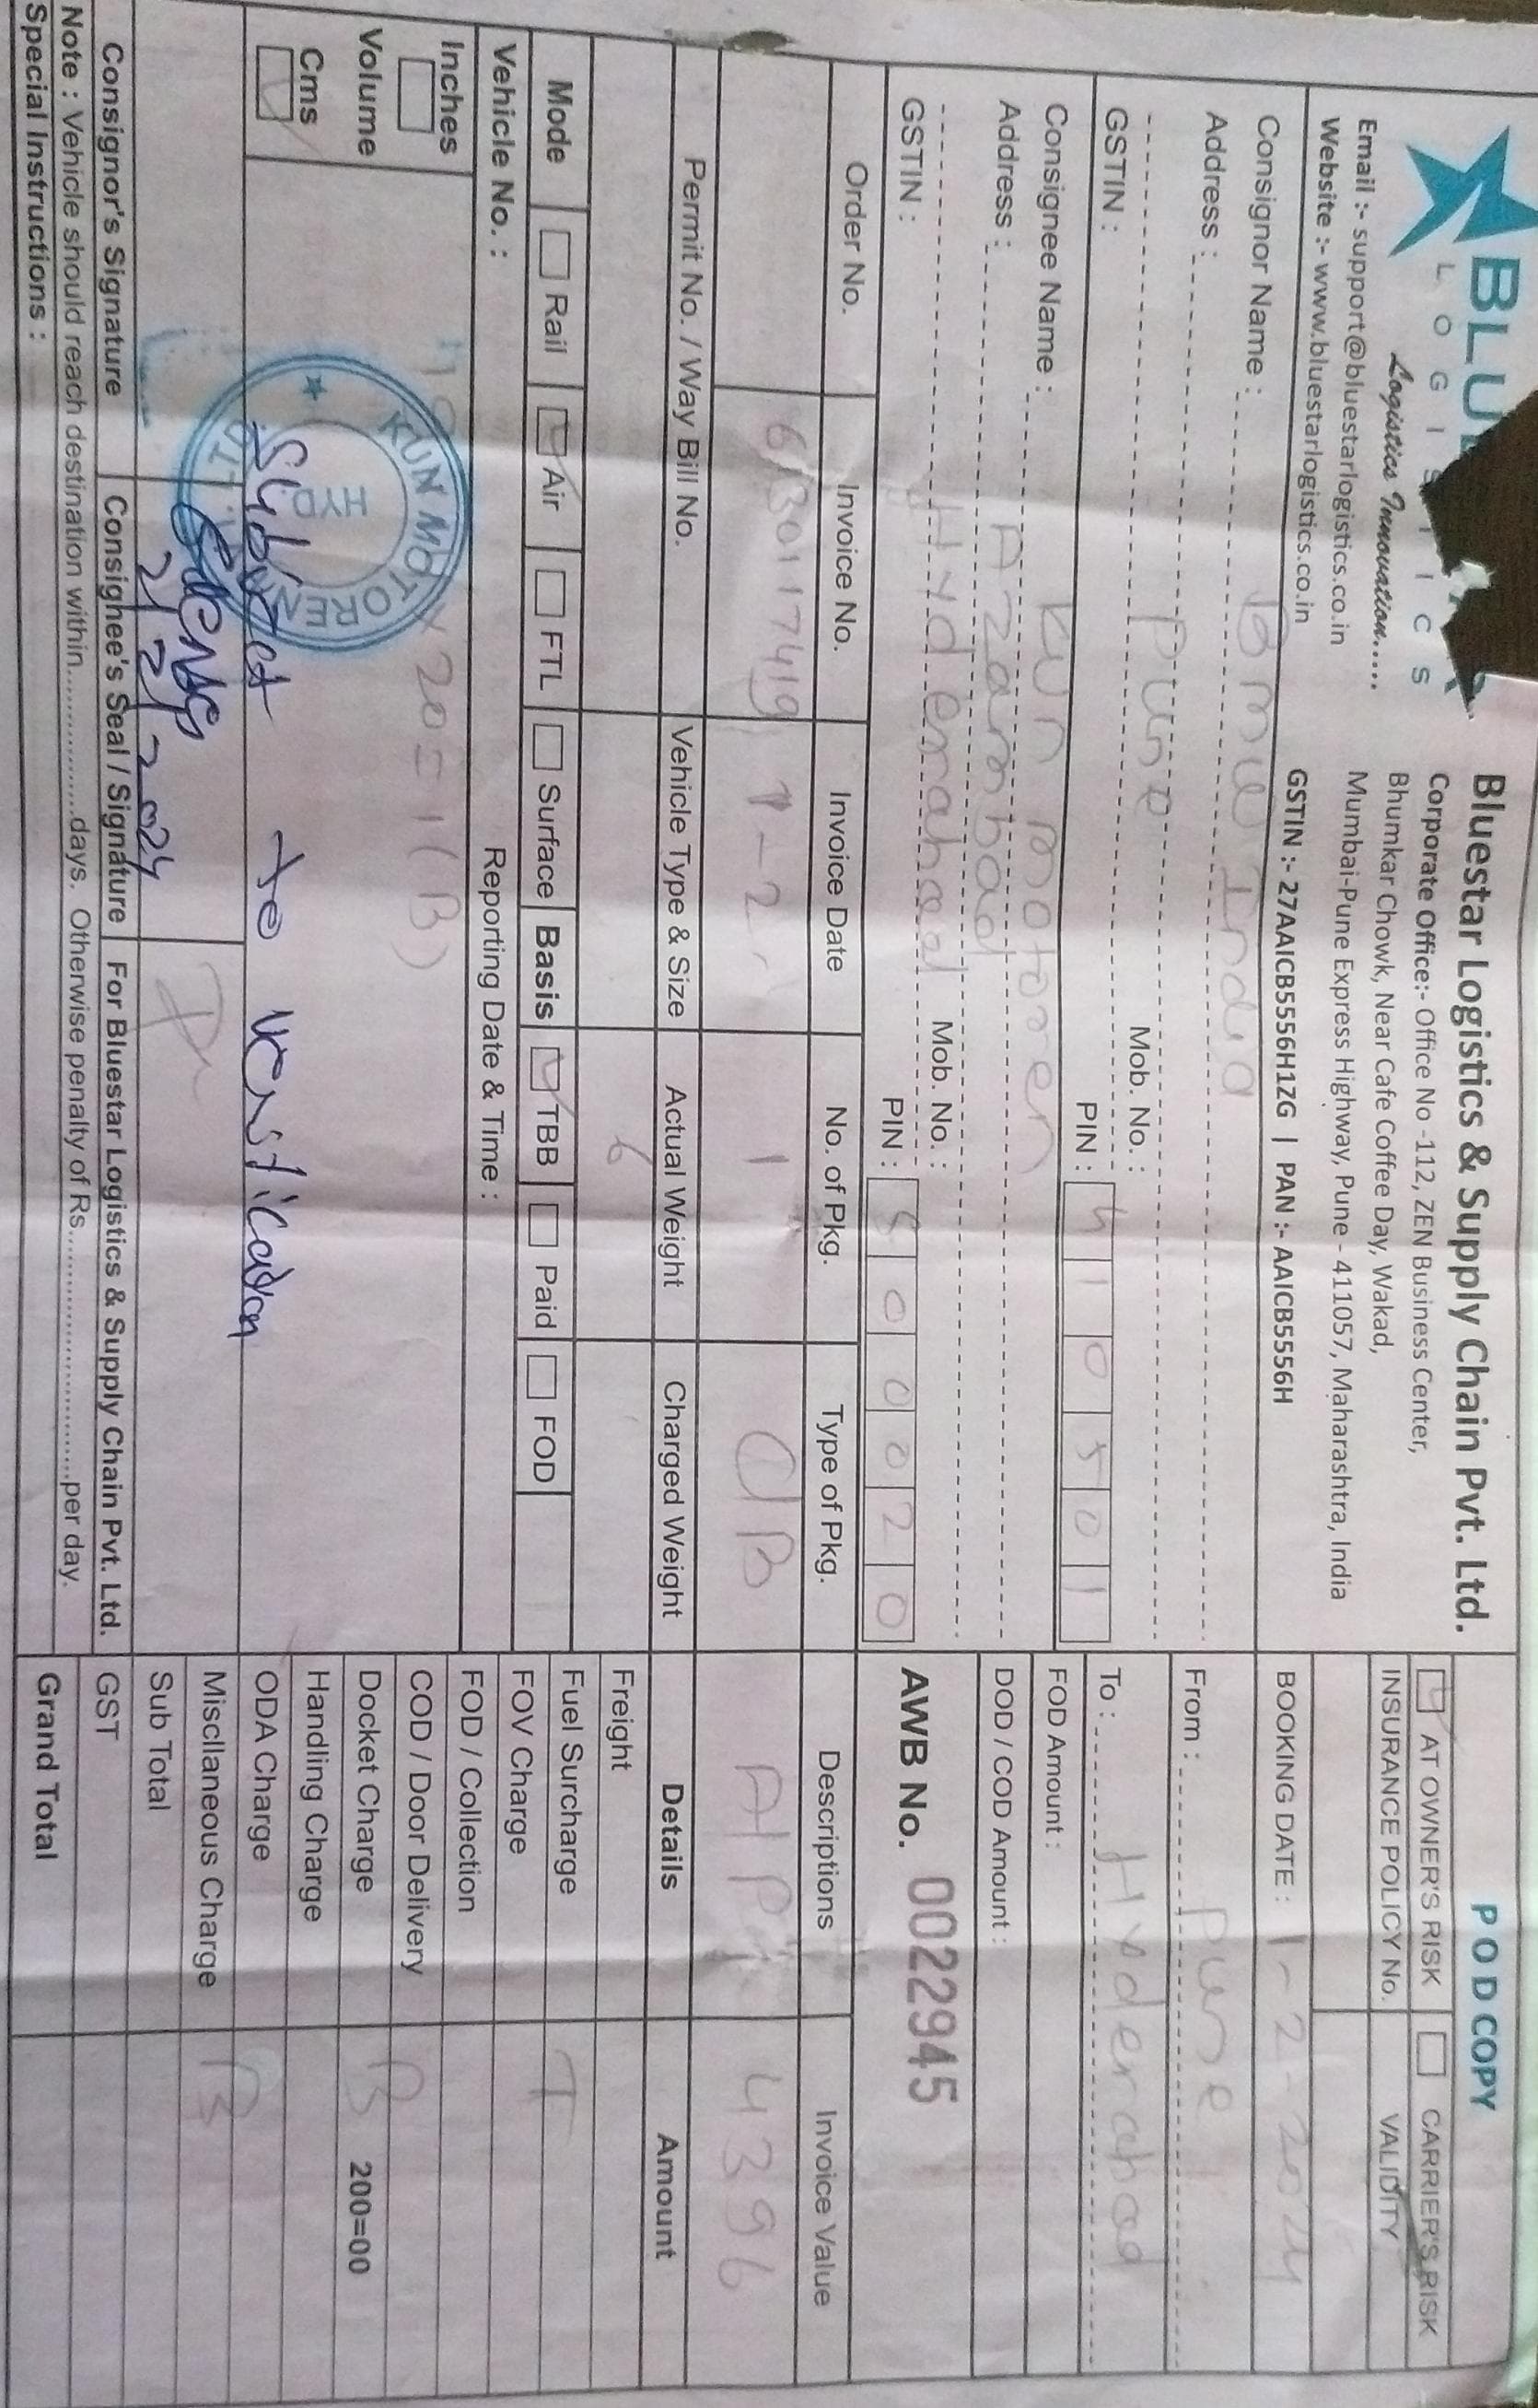 LOGISTICS
Logistics Innovation.....
Email :- support@bluestarlogistics.co.in
Website :- www.bluestarlogistics.co.in
Bluestar Logistics & Supply Chain Pvt. Ltd.
Corporate Office:- Office No -112, ZEN Business Center,
Bhumkar Chowk, Near Cafe Coffee Day, Wakad,
Mumbai-Pune Express Highway, Pune - 411057, Maharashtra, India
GSTIN :- 27AAICB5556H1ZG | PAN :- AAICB5556H
P O D COPY
AT OWNER'S RISK CARRIER'S RISK
INSURANCE POLICY No. VALIDITY
BOOKING DATE : 1-2-2024
From : Pune
To : Hyderabad
FOD Amount :
DOD / COD Amount :
AWB No. 0022945
Consignor Name : BMW India
Address :
Pune
Mob. No. :
GSTIN :
PIN : 410501
Consignee Name : KUN motoren
Address : Azambad
Hyderabad Mob. No. :
GSTIN :
PIN : 500020
Order No. Invoice No. Invoice Date No. of Pkg. Type of Pkg. Descriptions Invoice Value
6130117419 1-2 1 C/B A/P 4396
Permit No. / Way Bill No. Vehicle Type & Size Actual Weight Charged Weight Details Amount
6
Mode Rail Air FTL Surface Basis TBB Paid FOD
Vehicle No. : Reporting Date & Time :
Inches
Volume
Cms
20=1(B)
KUN MOTOREN
HYD.
LTD.
Subject to verification
2/2/2024
Consignor's Signature Consighee's Seal / Signature For Bluestar Logistics & Supply Chain Pvt. Ltd.
Note : Vehicle should reach destination within.................days. Otherwise penalty of Rs.............................per day.
Special Instructions :
Freight
Fuel Surcharge T
FOV Charge
FOD / Collection
COD / Door Delivery
Docket Charge B 200=00
Handling Charge
ODA Charge
Miscllaneous Charge B
Sub Total
GST
Grand Total